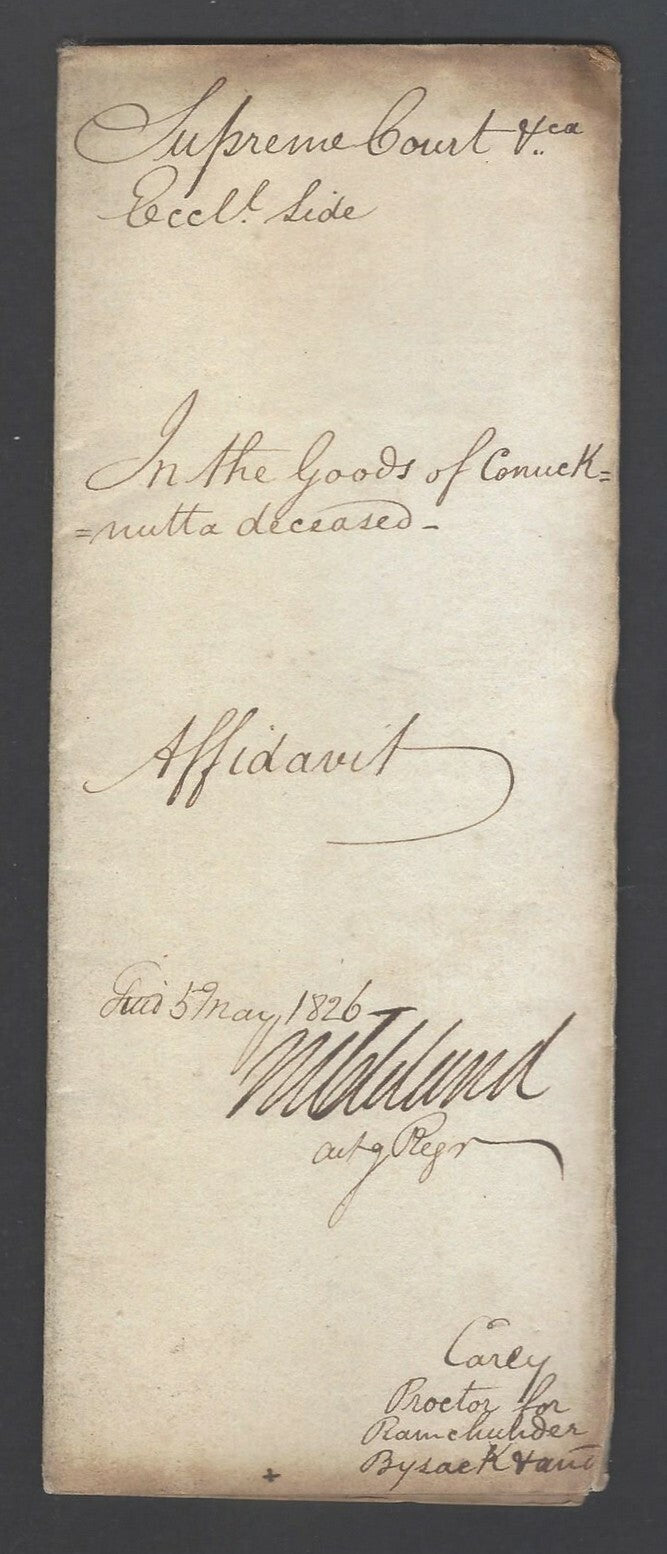 Supreme Court &ca
Eccl.t Side
In the Goods of Conuck=
=nutta deceased-
Affidavit
5 May 1826
actg Regr
Carey
Proctor for
Ramchunder
Bysack & anr